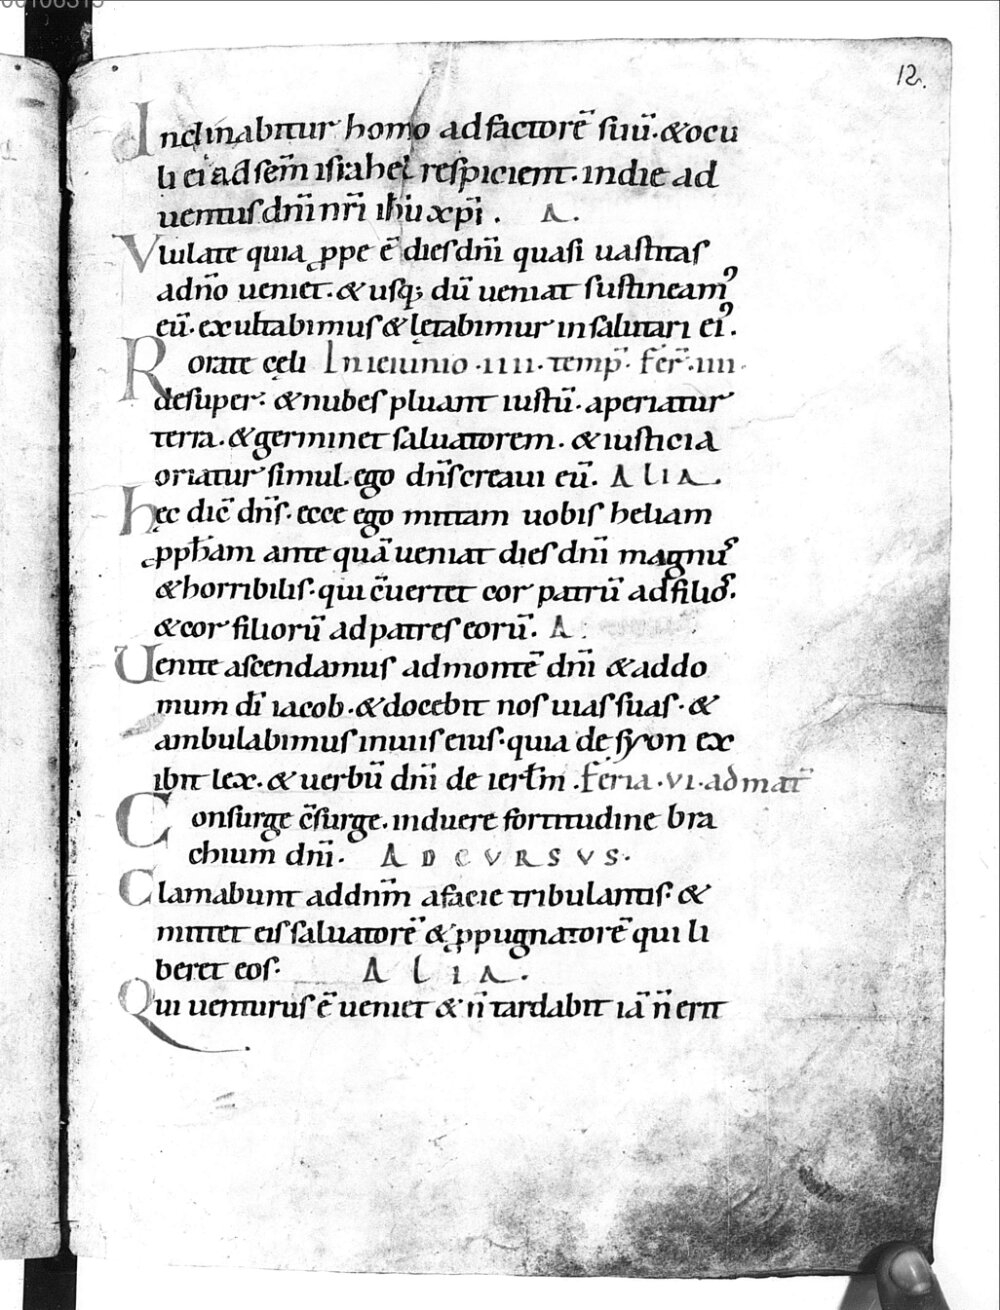 12.
Inclinabitur homo ad factorē suū. & ocu
li ei ad sc̄m israhel respicient. in die ad
uentus dn̄i nr̄i ih̄u xp̄i. A.
Vlulate quia ꝓpe ē dies dn̄i quasi uastitas
a dn̄o ueniet. & usq; dū ueniat sustineamꝰ
eū. exultabimus & lętabimur in salutari eiꝰ.
Rorate cęli In ieiunio .iiii. temp̄. fer̄. iiii.
desuper. & nubes pluant iustū. aperiatur
terra. & germinet saluatorem. & iusticia
oriatur simul. ego dn̄s creaui eū. ALIA.
hęc dic̄ dn̄s. ecce ego mittam uobis heliam
ꝓph̄am ante quā ueniat dies dn̄i magnuꝰ
& horribilis. qui c̄uertet cor patrū ad filioꝰ.
& cor filiorū ad patres eorū. A.
Uenite ascendamus ad montē dn̄i & ad do
mum dī iacob. & docebit nos uias suas. &
ambulabimus in uiis eius. quia de syon ex
ibit lex. & uerbū dn̄i de ierl̄m. feria. vi. ad mat̄
Consurge c̄surge. induere fortitudine bra
chium dn̄i. AD CVRSVS.
Clamabunt ad dn̄m a facie tribulantis. &
mittet eis saluatorē & ꝓpugnatorē qui li
beret eos. ALIA.
Qui uenturus ē ueniet & n̄ tardabit iā n̄ erit